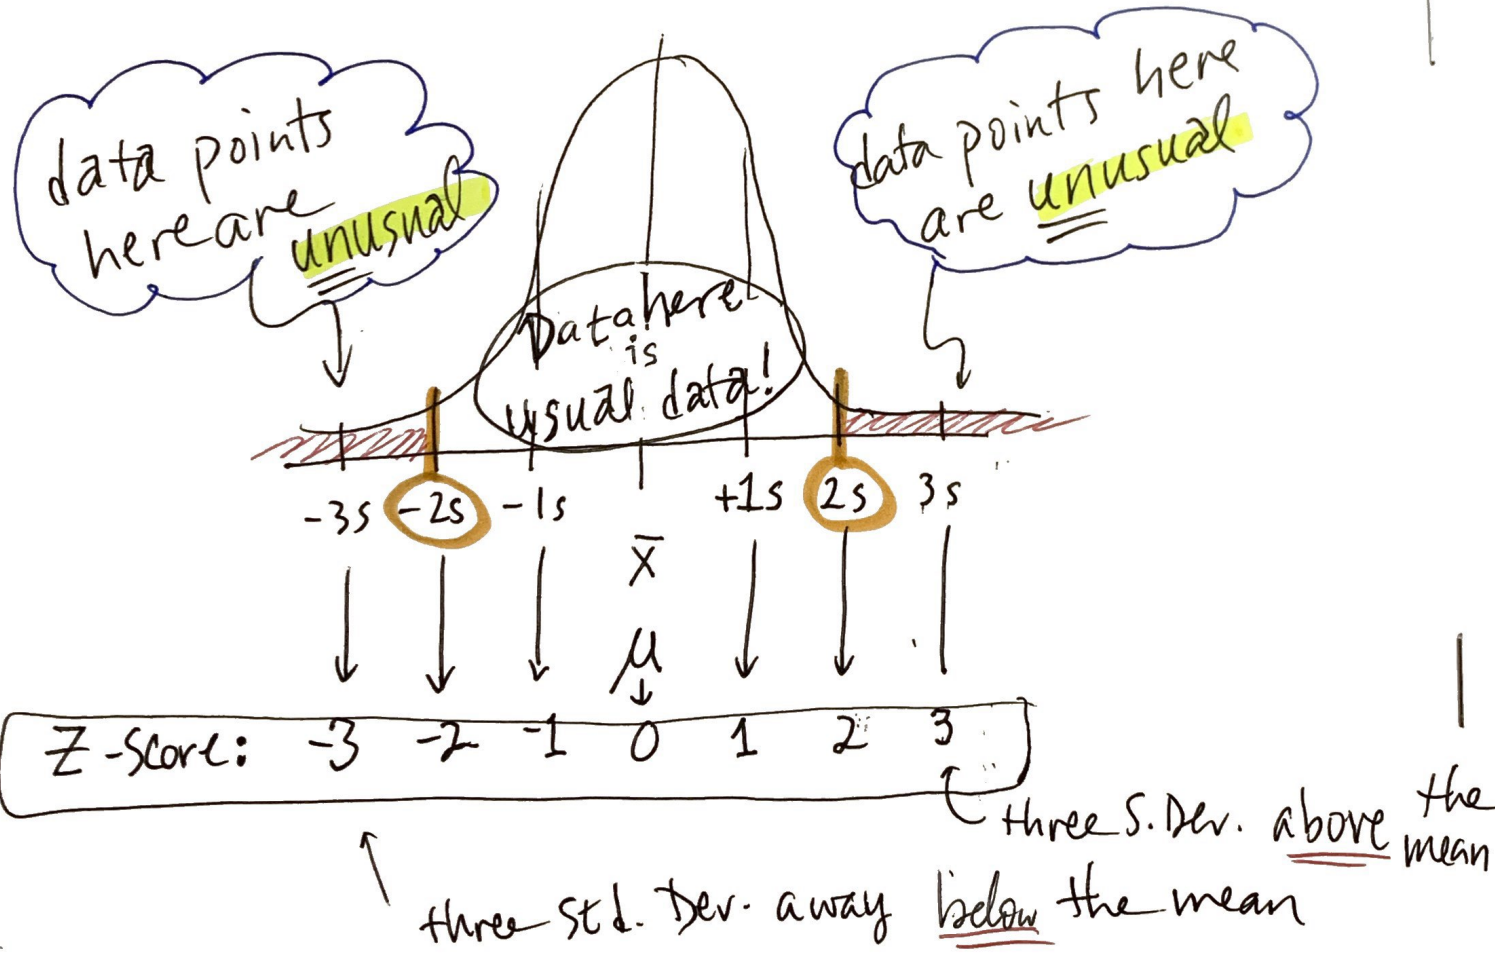 data points
here are
unusual
data points here
are unusual
Data here
is
usual data!
-3s -2s -1s +1s 2s 3s
x̄
μ
Z-Score: -3 -2 -1 0 1 2 3
three S. Dev. above the
mean
three Std. Dev. away below the mean